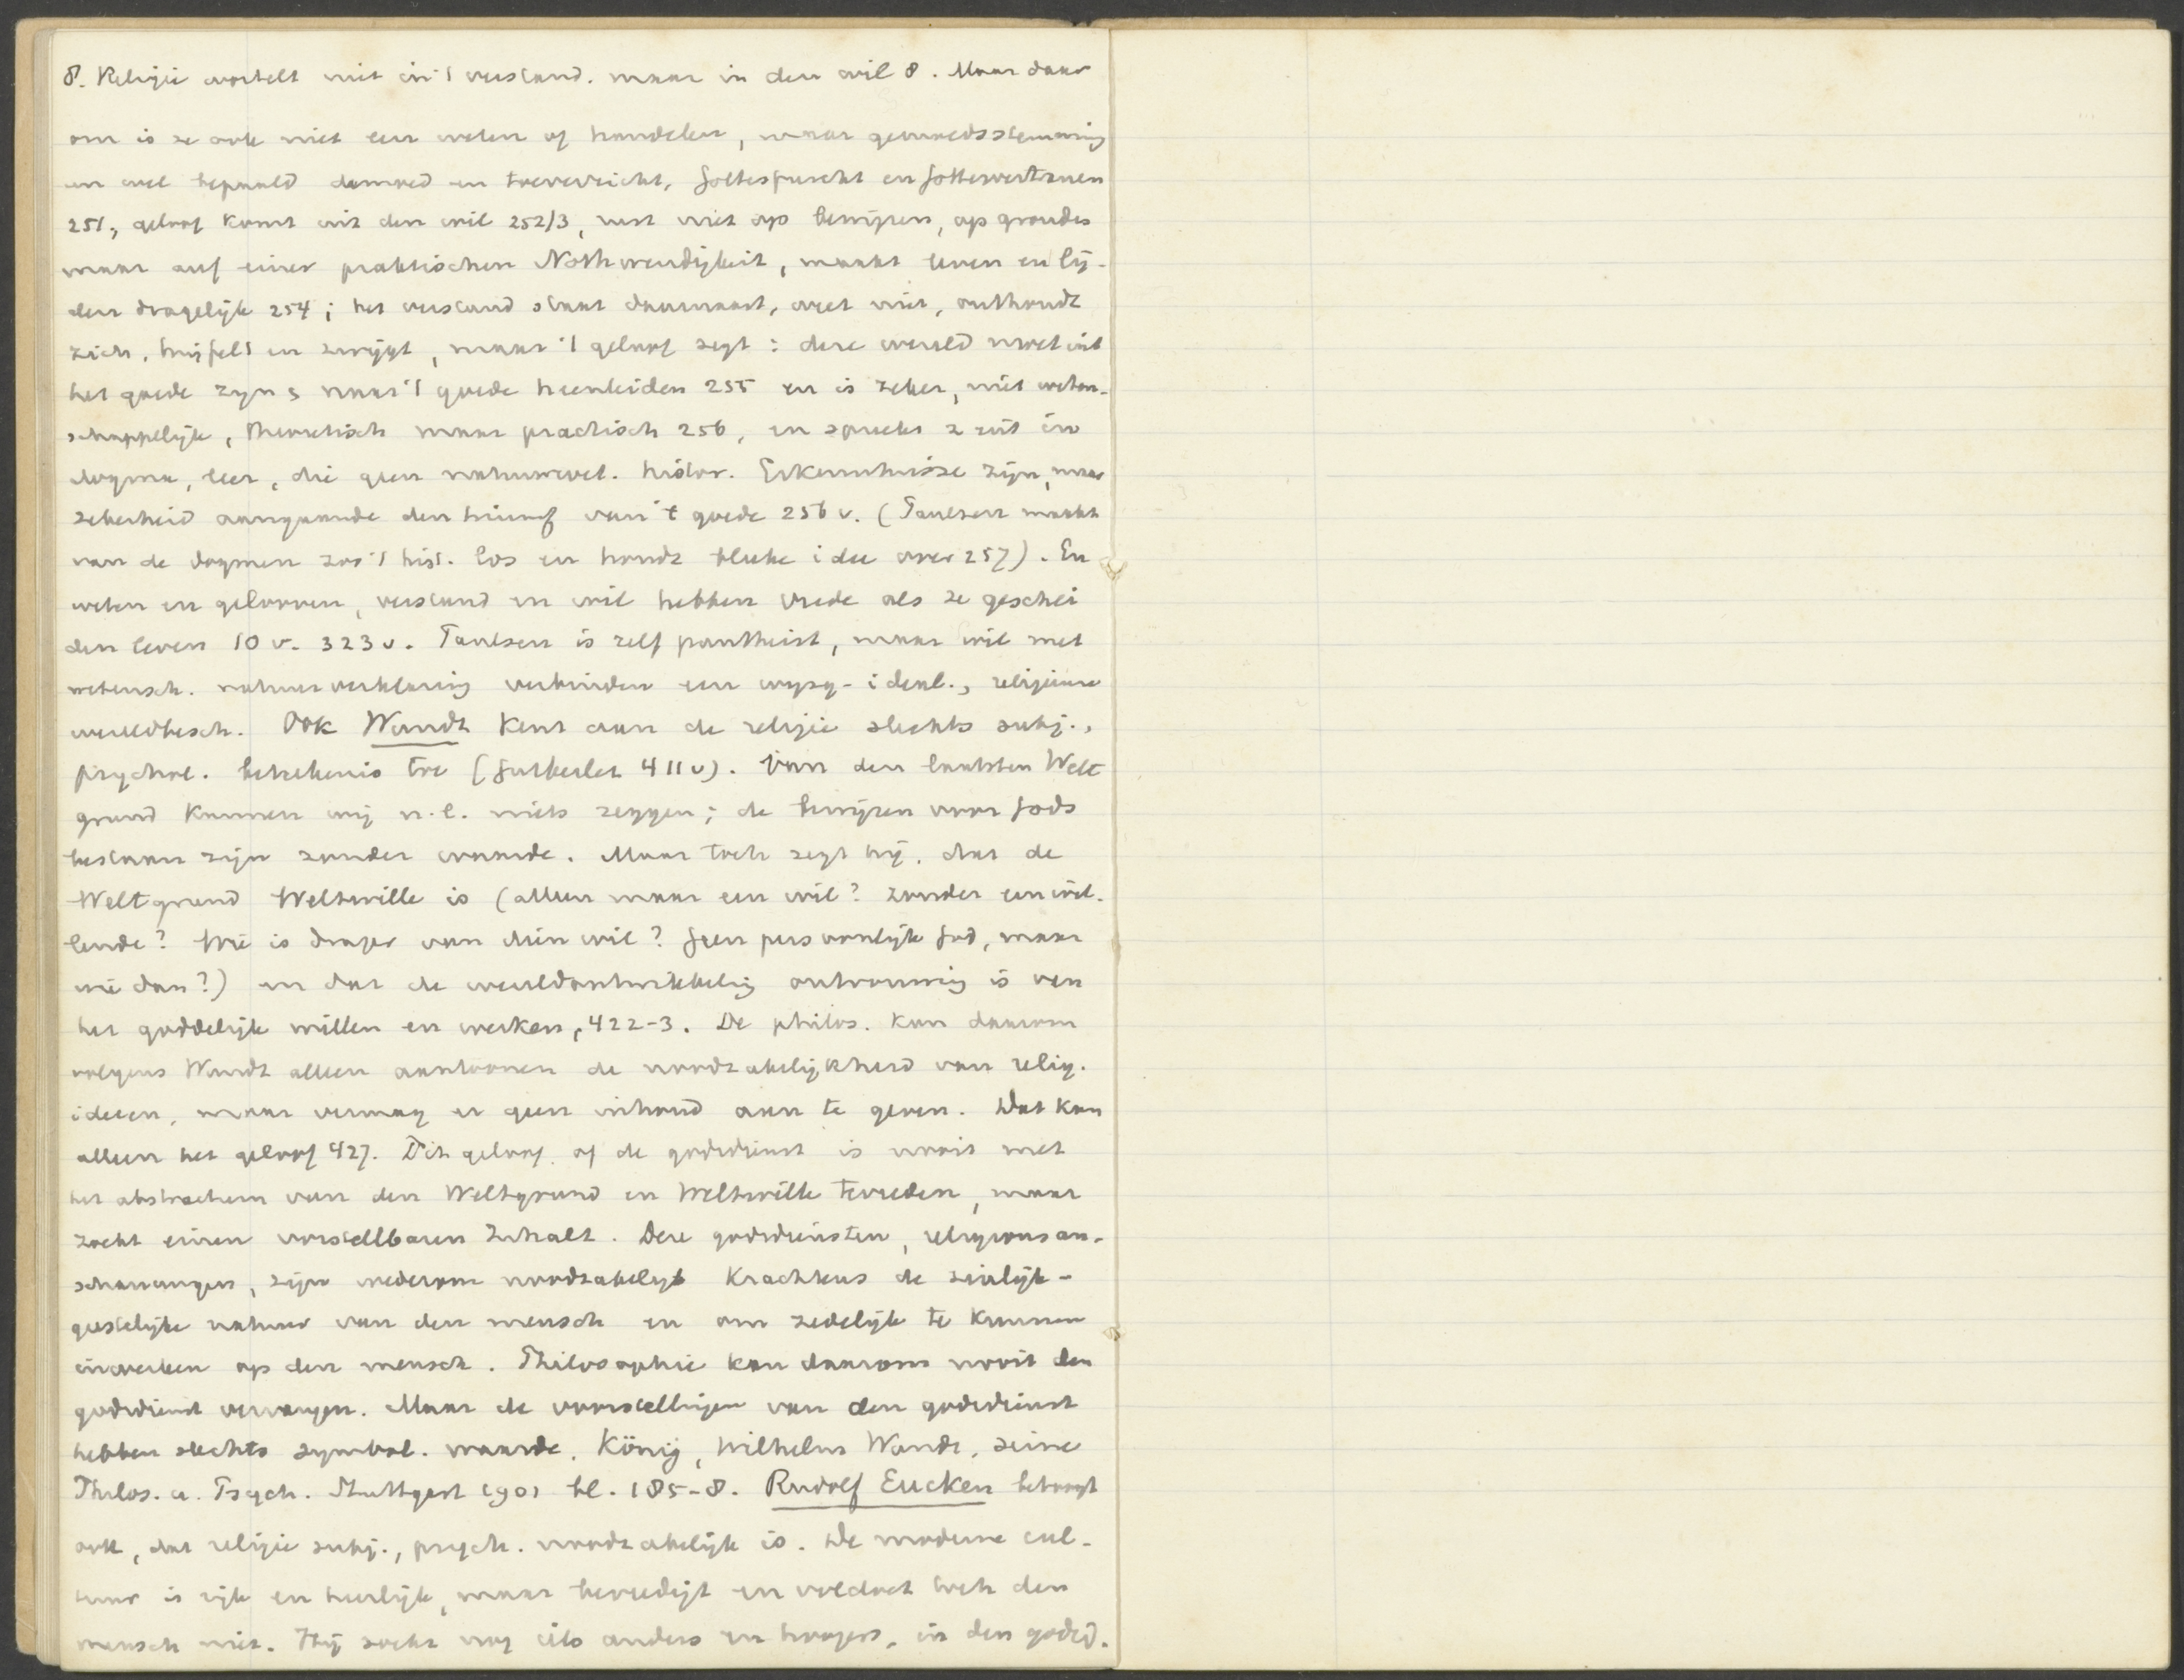 8. Religie wortelt niet in 't verstand. maar in den wil 8. Maar daar
om is ze ook niet een weten of handelen, maar gemoedsstemming
en wel bepaald demoed en toeverzicht, Gottesfurcht en Gottesvertrauen
251, geloof komt uit den wil 252/3, rust niet op bewijzen, op gronden
maar auf einer praktischen Nothwendigkeit, maakt leven en lij-
den dragelijk 254; het verstand staat daarnaast, weet niet, onthoudt
zich, twijfelt en zwijgt, maar 't geloof zegt: deze wereld moet uit
het goede zijn & naar 't goede heenleiden 255 en is zeker, niet weten-
schappelijk, theoretisch maar practisch 256, en spreekt z. uit in
dogma, leer, die geen natuurwet. histor. Erkenntnisse zijn, maar
zekerheid aangaande den triumf van 't goede 256 v. (Paulsen maakt
van de dogmen zoo 't hist. los en houdt bleeke idee over 257). En
weten en gelooven, verstand en wil hebben vrede als ze geschei
den leven 10 v. 323 v. Paulsen is zelf pantheist, maar wil met
wetensch. natuurverklaring verbinden een wijsg-ideal., religieuse
wereldbesch. Ook Wundt kent aan de religie slechts subj.,
psychol. betekenis toe (Gutberlet 411 v). Van den laatsten Welt
grund kunnen wij n.l. niets zeggen; de bewijzen voor Gods
bestaan zijn zonder waarde. Maar toch zegt hij, dat de
Weltgrund Weltwille is (alleen maar een wil? zonder een wil-
lende? Wie is drager van dien wil? Geen persoonlijk God, maar
wie dan?) en dat de wereldontwikkeling ontvouwing is van
het goddelijk willen en werken, 422-3. De philos. kan daarom
volgens Wundt alleen aantoonen de noodzakelijkheid van relig.
ideeen, maar vermag er geen inhoud aan te geven. Dat kan
alleen het geloof 427. Dit geloof of de godsdienst is nooit met
het abstractum van den Weltgrund en Weltwille tevreden, maar
zoekt einen vorstellbaren Inhalt. Deze godsdiensten, religionsan-
schauungen, zijn wederom noodzakelijk krachtens de zinlijk-
geestelijke natuur van den mensch en om zedelijk te kunnen
inwerken op den mensch. Philosophie kan daarom nooit den
godsdienst vervangen. Maar de voorstellingen van den godsdienst
hebben slechts symbol. waarde. König, Wilhelm Wundt, seine
Philos. u. Psych. Stuttgart 1901 bl. 185-8. Rudolf Eucken betoogt
ook, dat religie subj., psych. noodzakelijk is. De moderne cul-
tuur is rijk en heerlijk, maar bevredigt en voldoet toch den
mensch niet. Hij zoekt nog iets anders en hoogers, in den godsd.